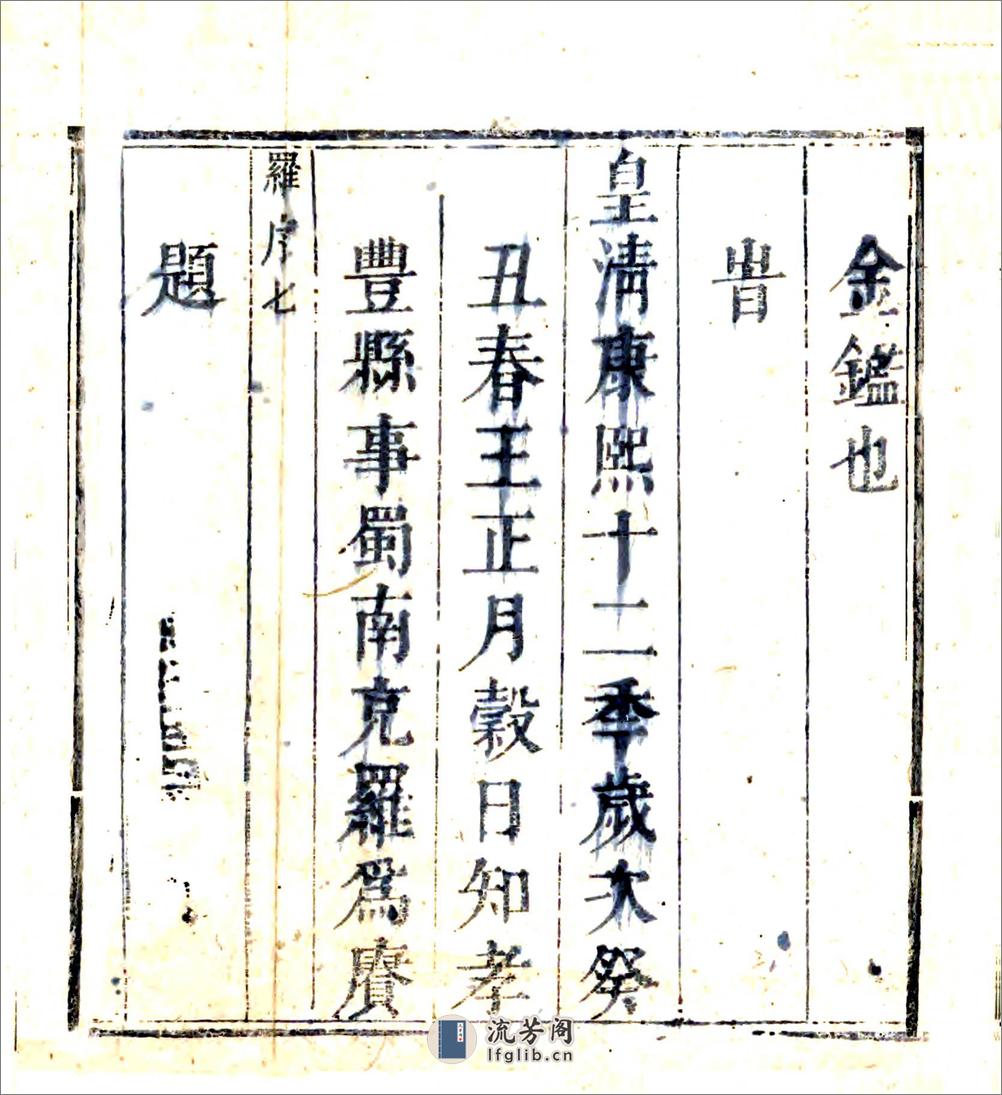 金鑑也
旹
皇清康熙十二季歲次癸
丑春王正月穀日知孝
豐縣事蜀南充羅爲賡
羅序七
題
流芳阁
lfglib.cn